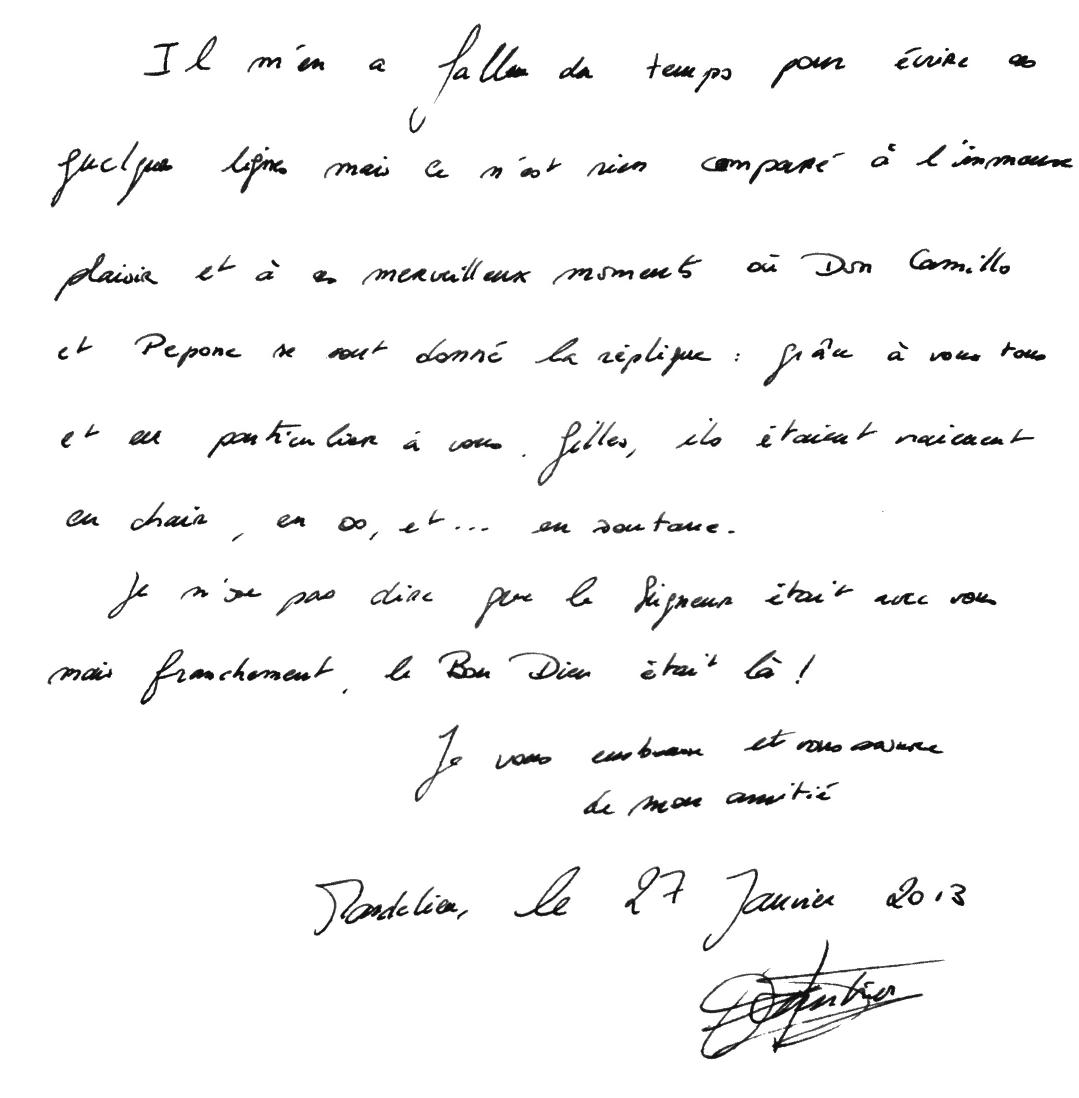 Il m'en a fallu du temps pour écrire ces
quelques lignes mais ce n'est rien comparé à l'immense
plaisir et à ces merveilleux moments où Don Camillo
et Pepone se sont donné la réplique : grâce à vous tous
et en particulier à vous, Gilles, ils étaient vraiment
en chair, en os, et... en soutane.
Je n'ose pas dire que le Seigneur était avec vous
mais franchement, le Bon Dieu était là !
Je vous embrasse et vous assure
de mon amitié
Mandelieu, le 27 Janvier 2013